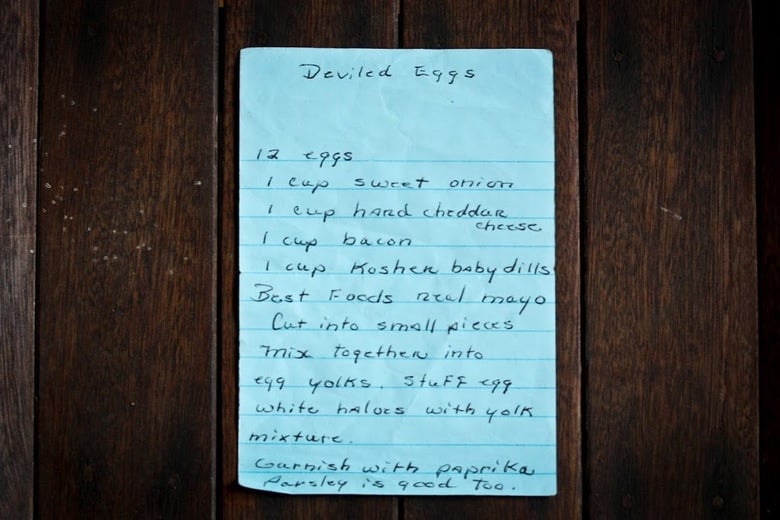 Deviled Eggs
12 eggs
1 cup sweet onion
1 cup hard cheddar
cheese
1 cup bacon
1 cup Kosher baby dills
Best Foods real mayo
Cut into small pieces
mix together into
egg yolks. Stuff egg
white halves with yolk
mixture.
Garnish with paprika
Parsley is good too.